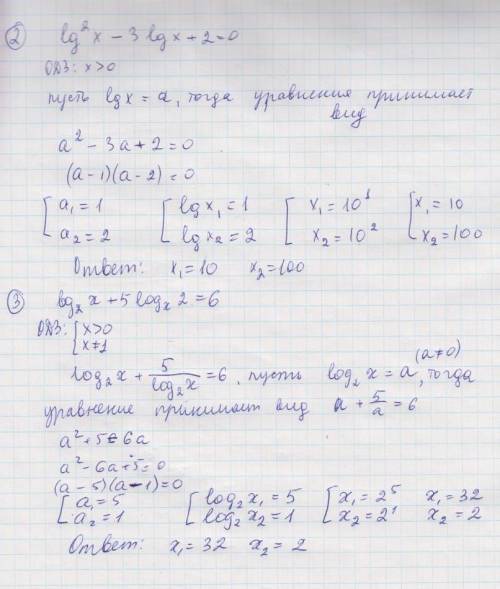 ② lg²x − 3 lg x + 2 = 0
ОДЗ: x>0
пусть lg x = a, тогда уравнения принимает
вид
a² − 3a + 2 = 0
(a−1)(a−2) = 0
[a₁ = 1 [lg x₁ = 1 [x₁ = 10¹ [x₁ = 10
a₂ = 2 lg x₂ = 2 x₂ = 10² x₂ = 100
Ответ: x₁ = 10 x₂ = 100
③ log₂x + 5 logₓ2 = 6
ОДЗ: {x>0
x≠1
log₂x + 5/log₂x = 6, пусть log₂x = a, (a≠0) тогда
уравнение принимает вид a + 5/a = 6
a² + 5 = 6a
a² − 6a + 5 = 0
(a−5)(a−1) = 0
[a₁ = 5 [log₂x₁ = 5 [x₁ = 2⁵ x₁ = 32
a₂ = 1 log₂x₂ = 1 x₂ = 2¹ x₂ = 2
Ответ: x₁ = 32 x₂ = 2